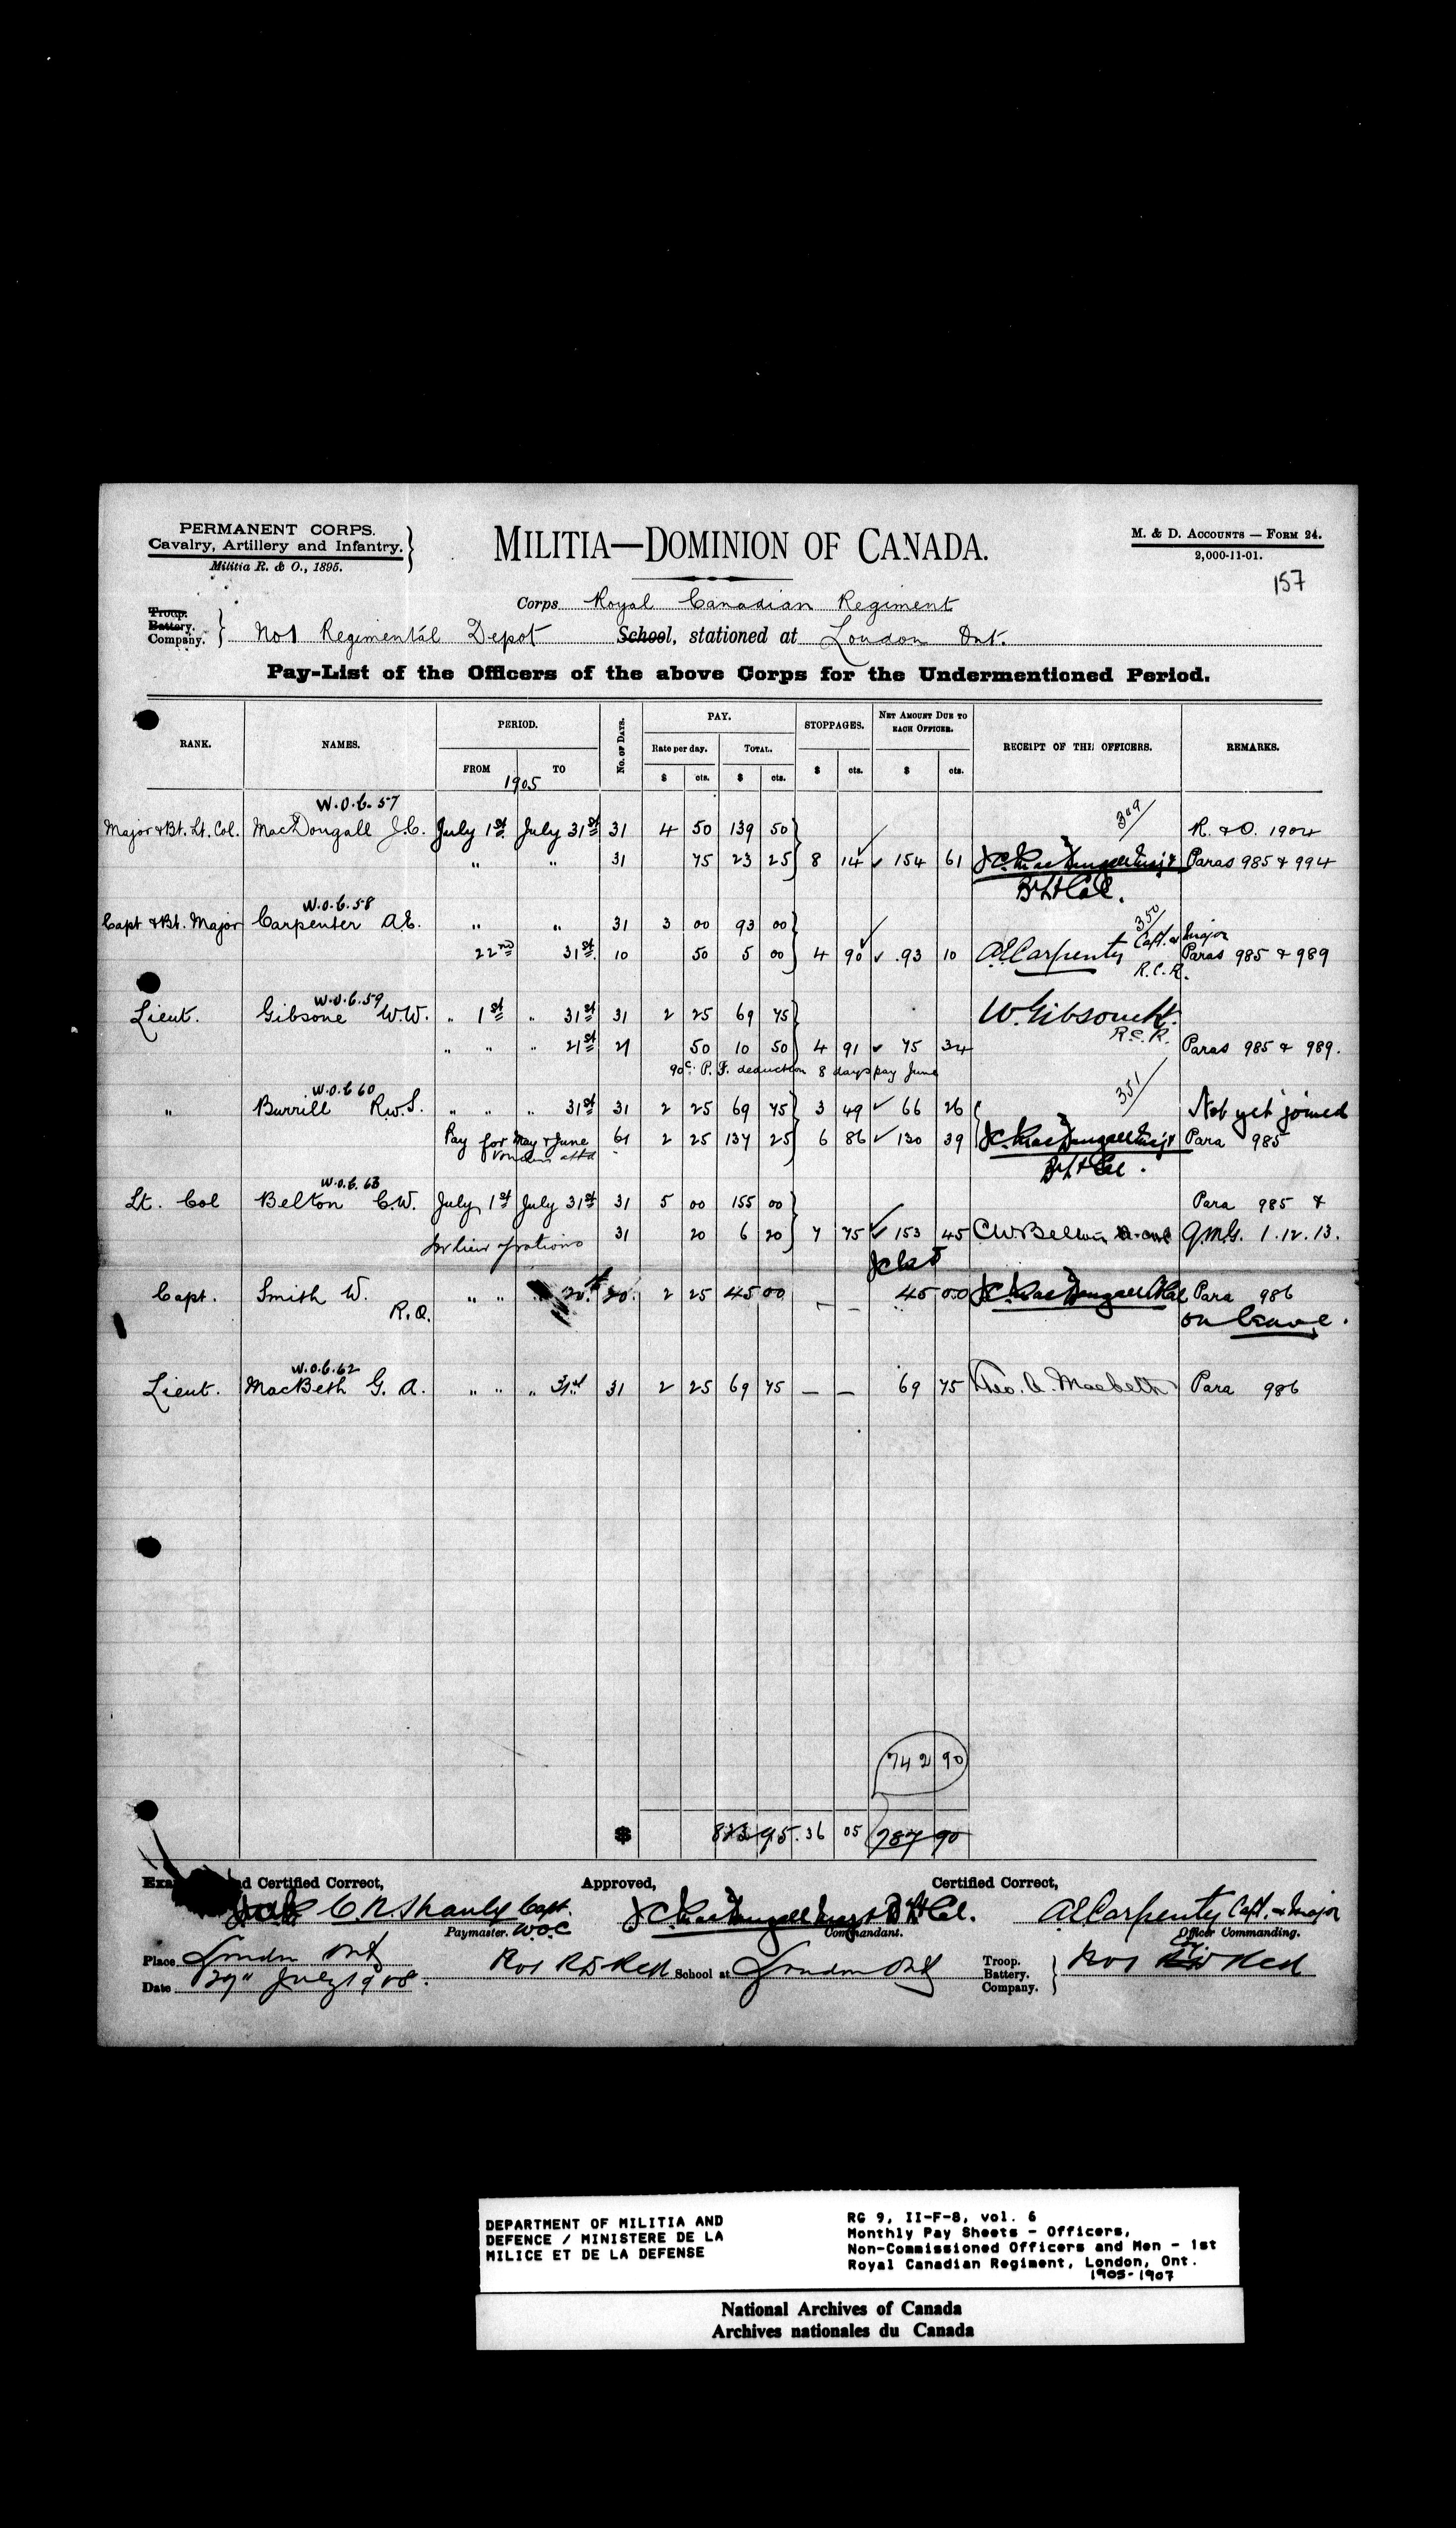 PERMANENT CORPS.
Cavalry, Artillery and Infantry.
Militia R. & O., 1895.
MILITIA—DOMINION OF CANADA.
M. & D. ACCOUNTS — FORM 24.
2,000-11-01.
157
Corps Royal Canadian Regiment
Troop.
Battery.
Company. No 1 Regimental Depot School, stationed at London Ont.
Pay-List of the Officers of the above Corps for the Undermentioned Period.
RANK. NAMES. PERIOD. No. of Days. PAY. STOPPAGES. NET AMOUNT DUE TO EACH OFFICER. RECEIPT OF THE OFFICERS. REMARKS.
Rate per day. TOTAL.
FROM TO $ cts. $ cts. $ cts. $ cts.
1905
W.O.C. 57
Major & Bt. Lt. Col. MacDougall J.C. July 1st July 31st 31 4 50 139 50 349 R. & O. 1904
" " 31 75 23 25 8 14 154 61 J.C. MacDougall Maj & Paras 985 & 994
Bt Lt Col.
W.O.C. 58
Capt & Bt. Major Carpenter A.E. " " 31 3 00 93 00 350
22nd 31st 10 50 5 00 4 90 93 10 A.E. Carpenter Capt. & Major R.C.R. Paras 985 & 989
W.O.C. 59
Lieut. Gibsone W.W. " 1st " 31st 31 2 25 69 75 W. Gibsone Lt.
R.C.R.
" " " 21st 21 50 10 50 4 91 75 34 Paras 985 & 989.
90c. P.F. deduction 8 days pay June
W.O.C 60 351
" Burrill R.W.S. " " " 31st 31 2 25 69 75 3 49 66 26 Not yet joined
Pay for May & June 61 2 25 137 25 6 86 130 39 J.C. MacDougall Maj & Para 985
Bt Lt Col.
W.O.C. 63
Lt. Col Belton C.W. July 1st July 31st 31 5 00 155 00 Para 985 &
In lieu of rations 31 20 6 20 7 75 153 45 C.W. Belton Q.M.G. 1.12.13.
Capt. Smith W. " " " 20th 20 2 25 45 00 — — 45 00 J.C. MacDougall Para 986
R.O. on leave.
W.O.C. 62
Lieut. MacBeth G. A. " " " 31st 31 2 25 69 75 — — 69 75 Geo. A. Macbeth Para 986
742 90
$ 823 95 36 05 787 90
Certified Correct, Approved, Certified Correct,
C.N. Shanly Capt. J.C. MacDougall Maj & Bt Lt Col. A.E. Carpenter Capt. & Major
Paymaster. W.O.C Commandant. Officer Commanding.
Place London Ont No 1 RD RCR School at London Ont Troop. Battery. Company. No 1 RCR
Date 29" July 1905.
DEPARTMENT OF MILITIA AND
DEFENCE / MINISTERE DE LA
MILICE ET DE LA DEFENSE
RG 9, II-F-8, vol. 6
Monthly Pay Sheets - Officers,
Non-Commissioned Officers and Men - 1st
Royal Canadian Regiment, London, Ont.
1905-1907
National Archives of Canada
Archives nationales du Canada